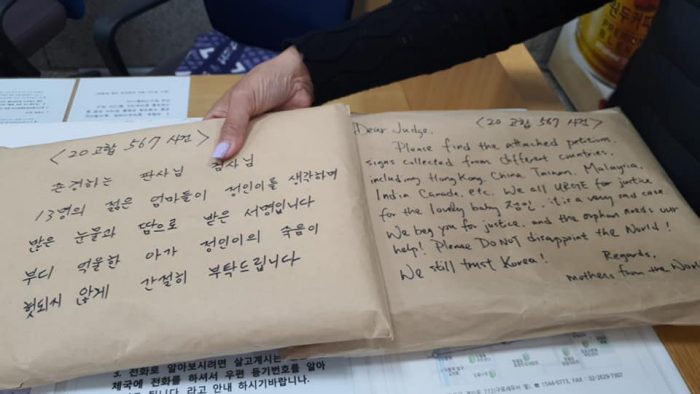 <20 고합 567 사건>
존경하는 판사님 검사님
13명의 젊은 엄마들이 정인이를 생각하며
많은 눈물과 땀으로 받은 서명입니다
부디 억울한 아가 정인이의 죽음이
헛되씨 않게 간절히 부탁드립니다
<20 고합 567 사건>
Dear Judge,
Please find the attached petition
signs collected from different countries,
including HongKong, China, Taiwan, Malaysia,
India, Canada, etc. We all URGE for justice
for the lovely baby 정인. it is a very sad case.
We beg you for justice, and the orphan needs our
help! Please DO NOT disappoint the World!
We still trust Korea!
Regards,
mothers from the World
3. 전화로 알아보시려면 살고계시는
체국에 전화를 하셔서 우편 등기번호를 알아
됩니다. 라고 안내 하시기바랍니다.